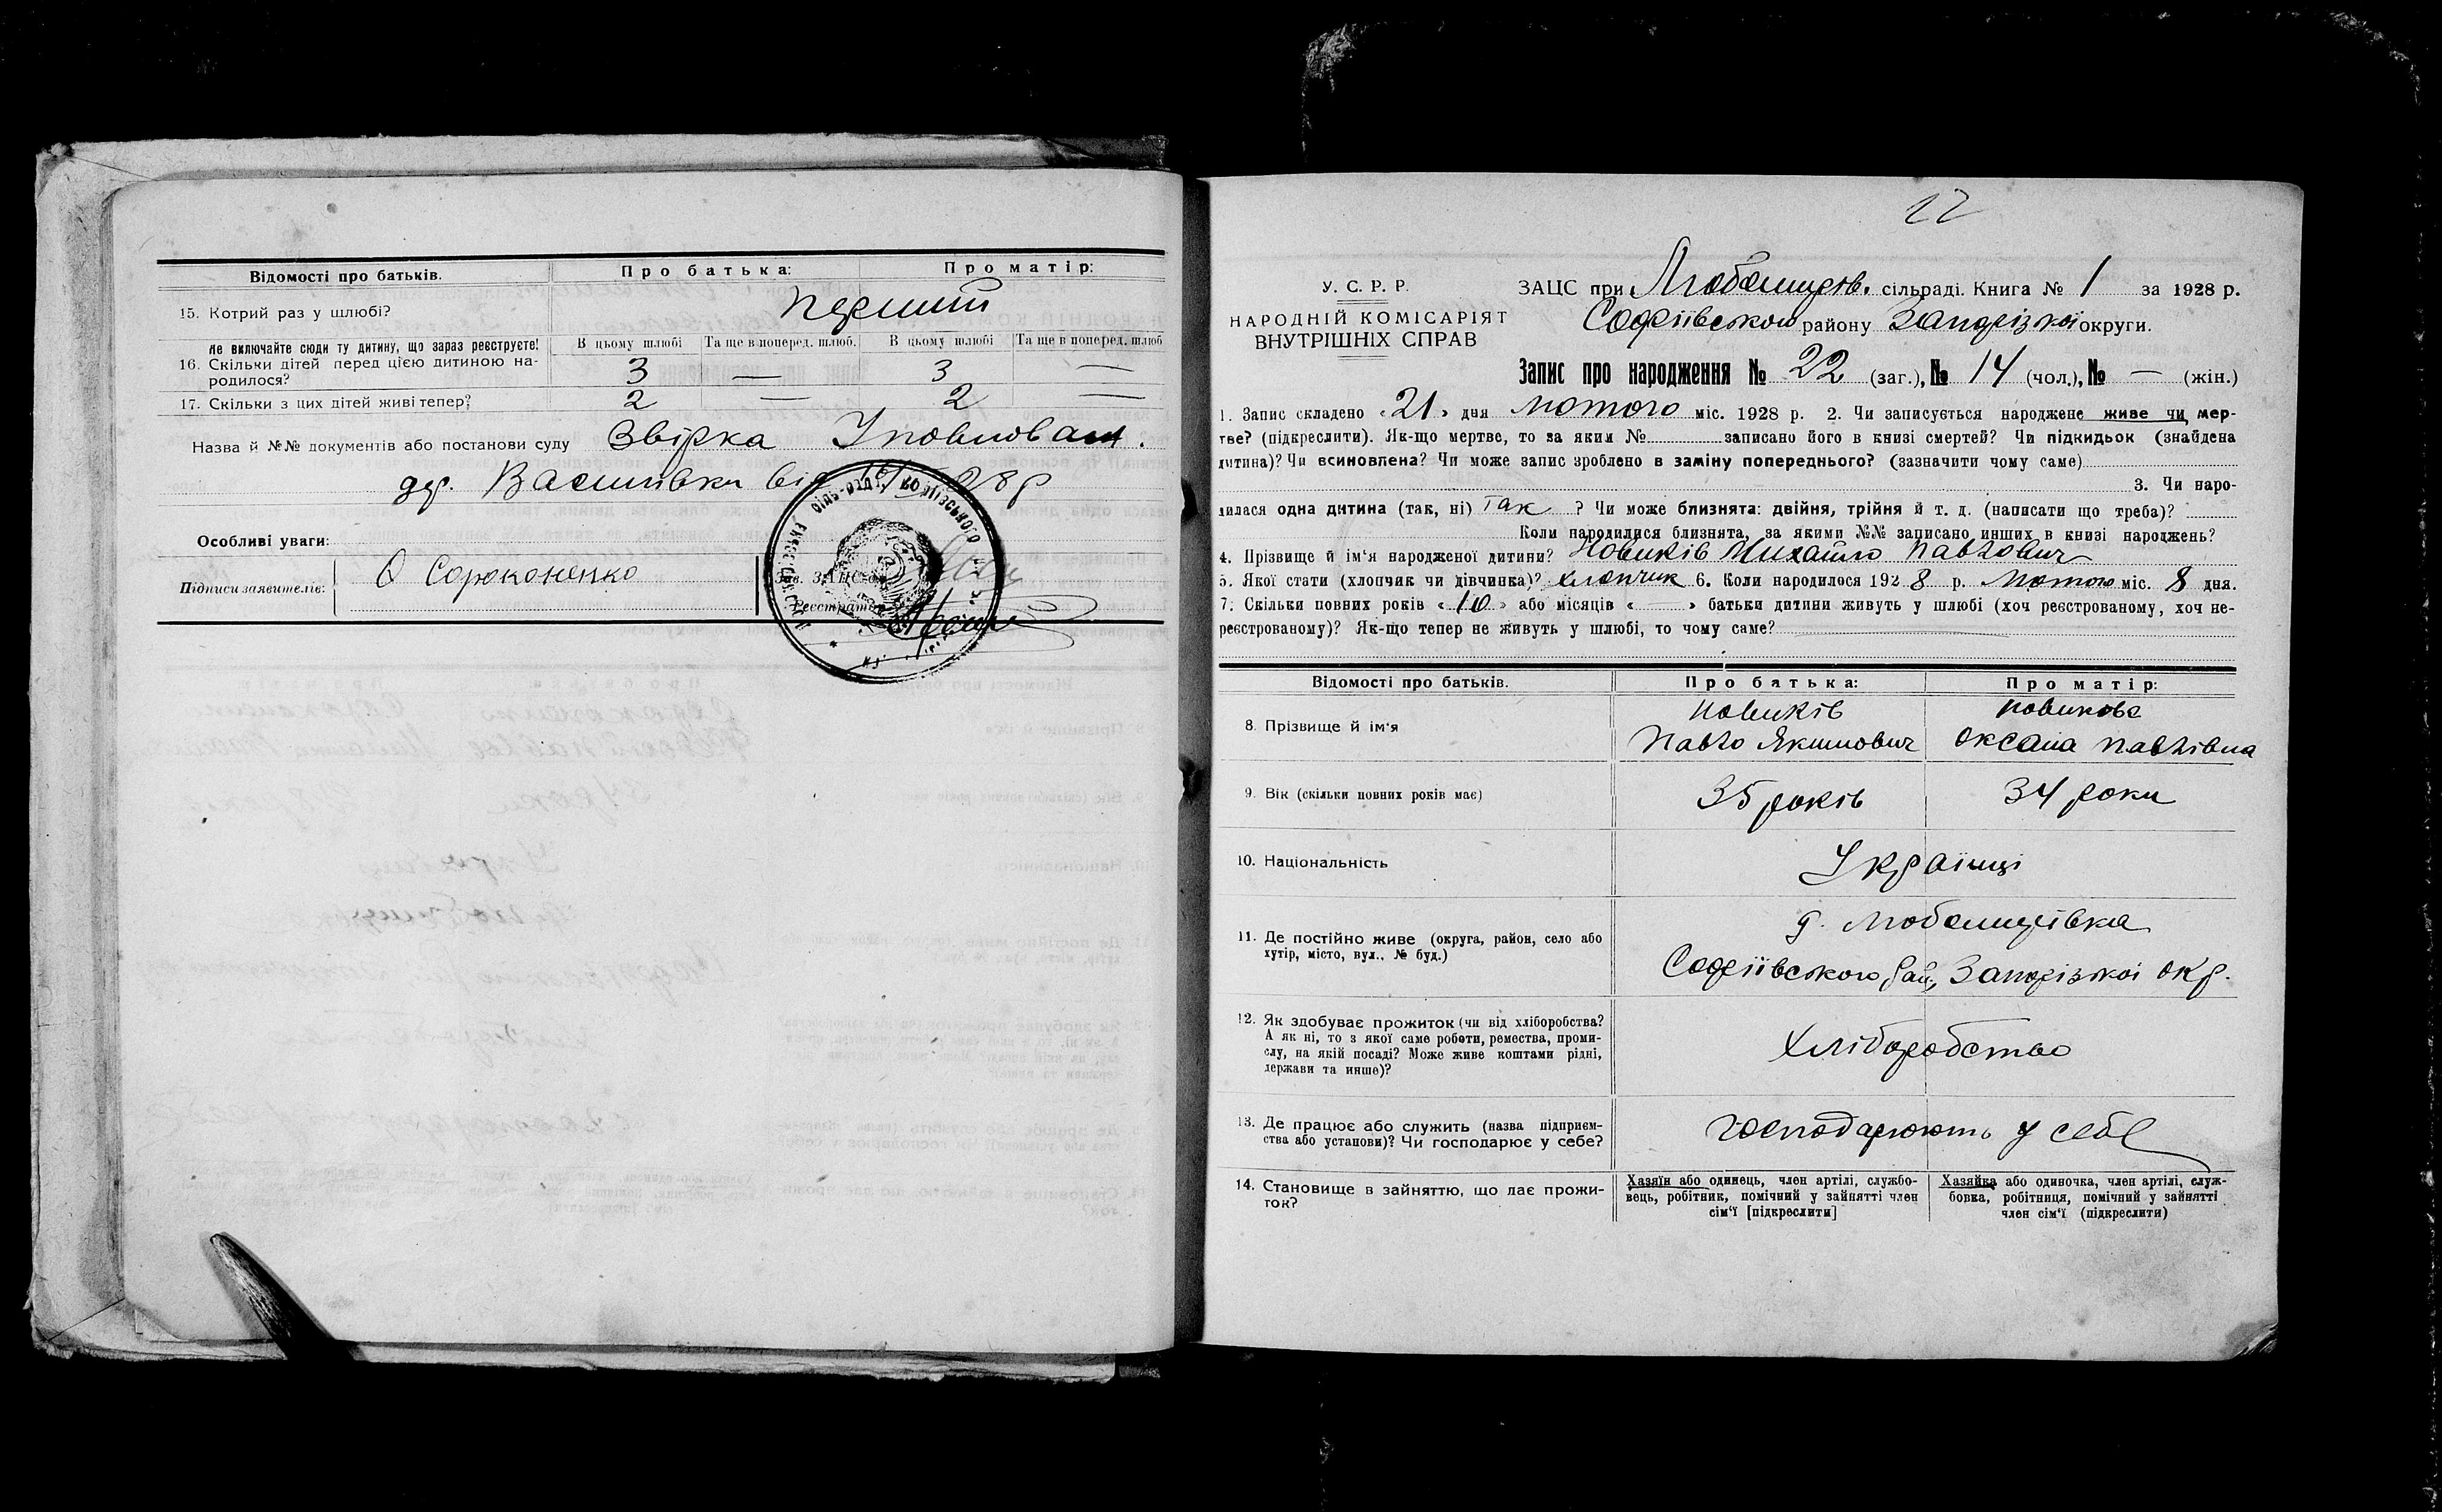 Відомості про батьків. Про батька: Про матір:
15. Котрий раз у шлюбі? перший
Не включайте сюди ту дитину, що зараз реєструєте! В цьому шлюбі Та ще в поперед. шлюб. В цьому шлюбі Та ще в поперед. шлюб
16. Скільки дітей перед цією дитиною на-
родилося? 3 — 3 —
17. Скільки з цих дітей живі тепер? 2 — 2 —
Назва й №№ документів або постанови суду Звірка Уповноваж.
дер. Василівки від 28р
Особливі уваги:
Підписи заявителів: О Сороконенко
Зав. ЗАГСом
Реєстратор
22
У. С. Р. Р.
НАРОДНІЙ КОМІСАРІЯТ
ВНУТРІШНІХ СПРАВ
ЗАЦС при Любомирів. сільраді. Книга № 1 за 1928 р.
Софіївського району Запорізької округи.
Запис про народження № 22 (заг.), № 14 (чол.), № — (жін.)
1. Запис складено «21» дня лютого міс. 1928 р. 2. Чи записується народжене живе чи мер-
тве? (підкреслити). Як-що мертве, то за яким № записано його в книзі смертей? Чи підкидьок (знайдена
дитина)? Чи всиновлена? Чи може запис зроблено в заміну попереднього? (зазначити чому саме)
3. Чи наро-
дилася одна дитина (так, ні) так ? Чи може близнята: двійня, трійня й т. д. (написати що треба)?
Коли народилися близнята, за якими №№ записано инших в книзі народжень?
4. Прізвище й ім'я народженої дитини? Новиків Михайло Павлович
5. Якої стати (хлопчик чи дівчинка)? хлопчик 6. Коли народилося 1928 р. Лютого міс. 8 дня.
7. Скільки повних років «10» або місяців « » батьки дитини живуть у шлюбі (хоч реєстрованому, хоч не-
реєстрованому)? Як-що тепер не живуть у шлюбі, то чому саме?
Відомості про батьків. Про батька: Про матір:
8. Прізвище й ім'я Новиків Павло Якимович Новикова Оксана Павлівна
9. Вік (скільки повних років має) 35 років 34 роки
10. Національність Українці
11. Де постійно живе (округа, район, село або
хутір, місто, вул., № буд.) д. Любомирівка
Софіївського рай, Запорізької окр.
12. Як здобуває прожиток (чи від хліборобства?
А як ні, то з якої саме роботи, ремества, проми-
слу, на якій посаді? Може живе коштами рідні,
держави та инше)? Хліборобство
13. Де працює або служить (назва підприєм-
ства або установи)? Чи господарює у себе? господарюють у себе
14. Становище в зайняттю, що дає прожи-
ток?
Хазяїн або одинець, член артілі, службо-
вець, робітник, помічний у зайнятті член
сім'ї [підкреслити]
Хазяйка або одиночка, член артілі, служ-
бовка, робітниця, помічний у зайнятті
член сім'ї (підкреслити)